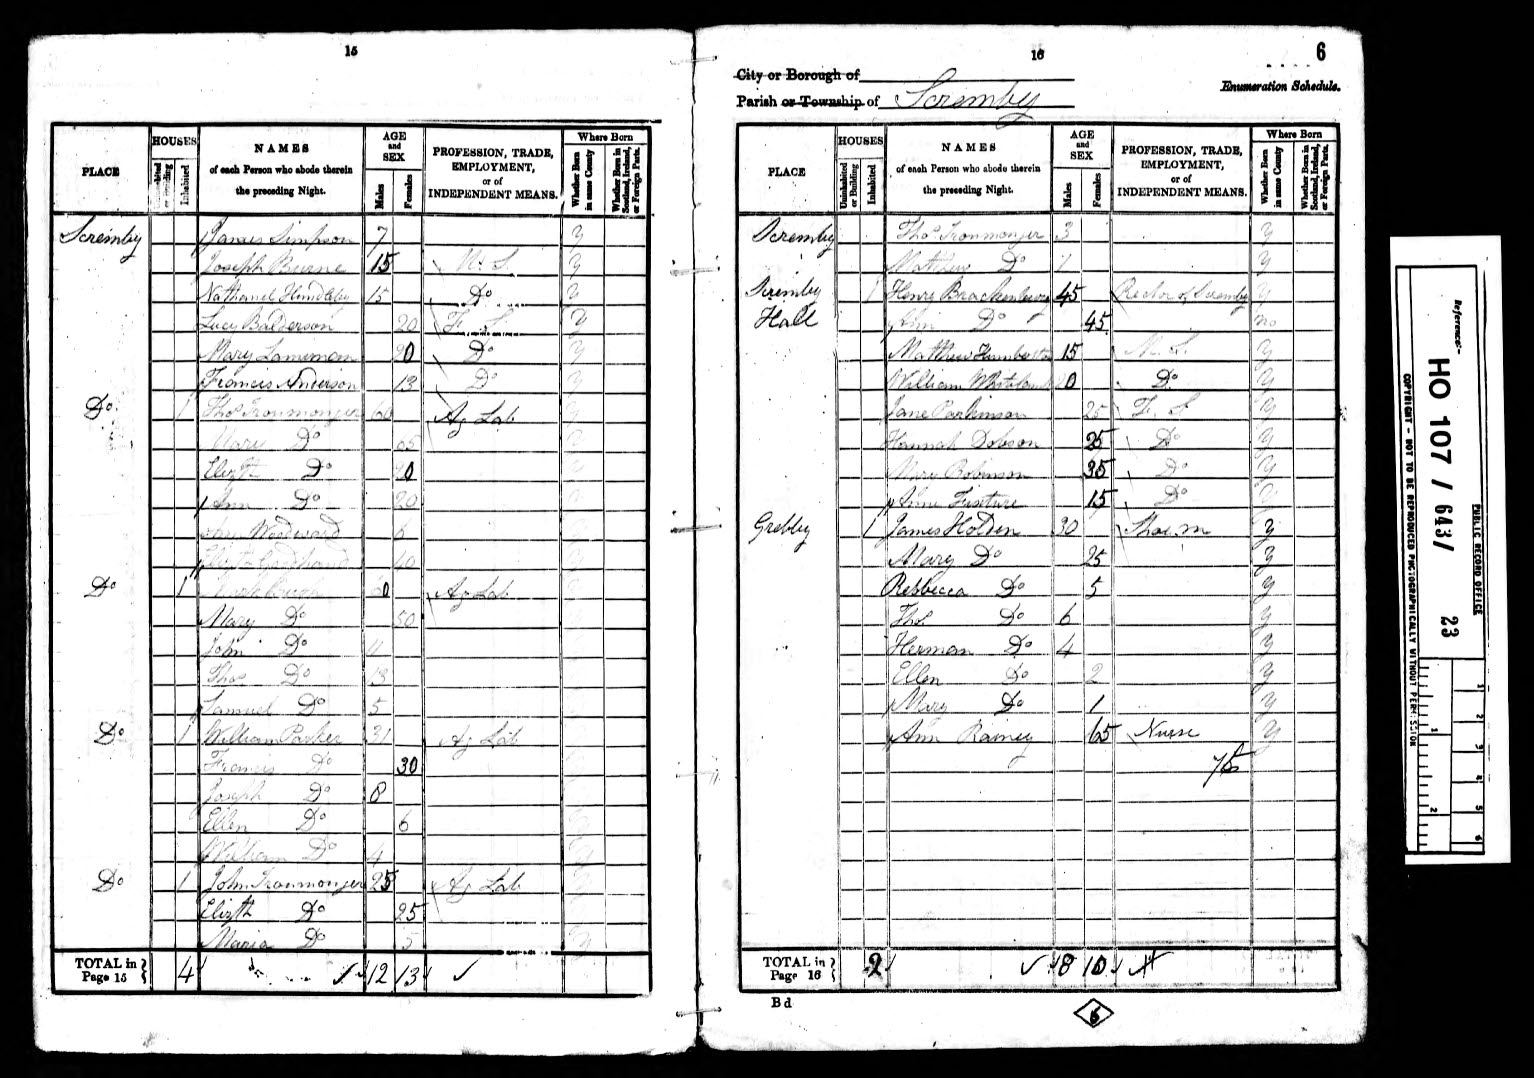 15
PLACE
HOUSES
Inhabited
NAMES
of each Person who abode therein
the preceding Night.
AGE
and
SEX
Males
Females
PROFESSION, TRADE,
EMPLOYMENT,
or of
INDEPENDENT MEANS.
Where Born
Whether Born
in same County
Whether Born in
Scotland, Ireland,
or Foreign Parts.
Scremby James Simpson 7 y
Joseph Burne 15 M. S. y
Nathaniel Hindley 15 Do y
Lucy Balderson 20 F. S. y
Mary Lamiman 20 Do y
Francis Anderson 13 Do y
Do 1 Thos Ironmonger 60 Ag Lab
Mary Do
Elizth Do
Ann Do 20
Woodward 6
40
Do 1 Ag Lab
Mary Do 50
John Do 11
Thos Do 13
Samuel Do 5
Do 1 William Parker 31 Ag Lab
Francis Do 30
Joseph Do 8
Ellen Do 6
William Do 4
Do 1 John Ironmonger 25 Ag Lab
Elizth Do 25
Maria Do 5
TOTAL in
Page 15 4 12 13
16
6
City or Borough of
Parish or Township of Scremby
Enumeration Schedule.
PLACE
HOUSES
Uninhabited
or Building
Inhabited
NAMES
of each Person who abode therein
the preceding Night.
AGE
and
SEX
Males
Females
PROFESSION, TRADE,
EMPLOYMENT,
or of
INDEPENDENT MEANS.
Where Born
Whether Born
in same County
Whether Born in
Scotland, Ireland,
or Foreign Parts.
Scremby Thos Ironmonger 3 y
Matthew Do 1 y
Scremby 1 Henry Brackenbury 45 Rector of Scremby y
Hall Ann Do 45 no
Matthew 15 M. S. y
William Do y
Jane Parkinson 25 F. S y
Hannah Dobson 25 Do y
Mary Robinson 35 Do y
Anne 15 Do y
Grebby 1 James Holden 30 Shoe.m y
Mary Do 25 y
Rebbecca Do 5 y
Thos Do 6 y
Herman Do 4 y
Ellen Do 2 y
Mary Do 1 y
Ann Rainey 65 Nurse y
TOTAL in
Page 16 2 8 10
B d
6
Reference:-
HO 107 / 643/ 23
PUBLIC RECORD OFFICE
COPYRIGHT - NOT TO BE REPRODUCED PHOTOGRAPHICALLY WITHOUT PERMISSION
1
2
3
4
5
6
1
2